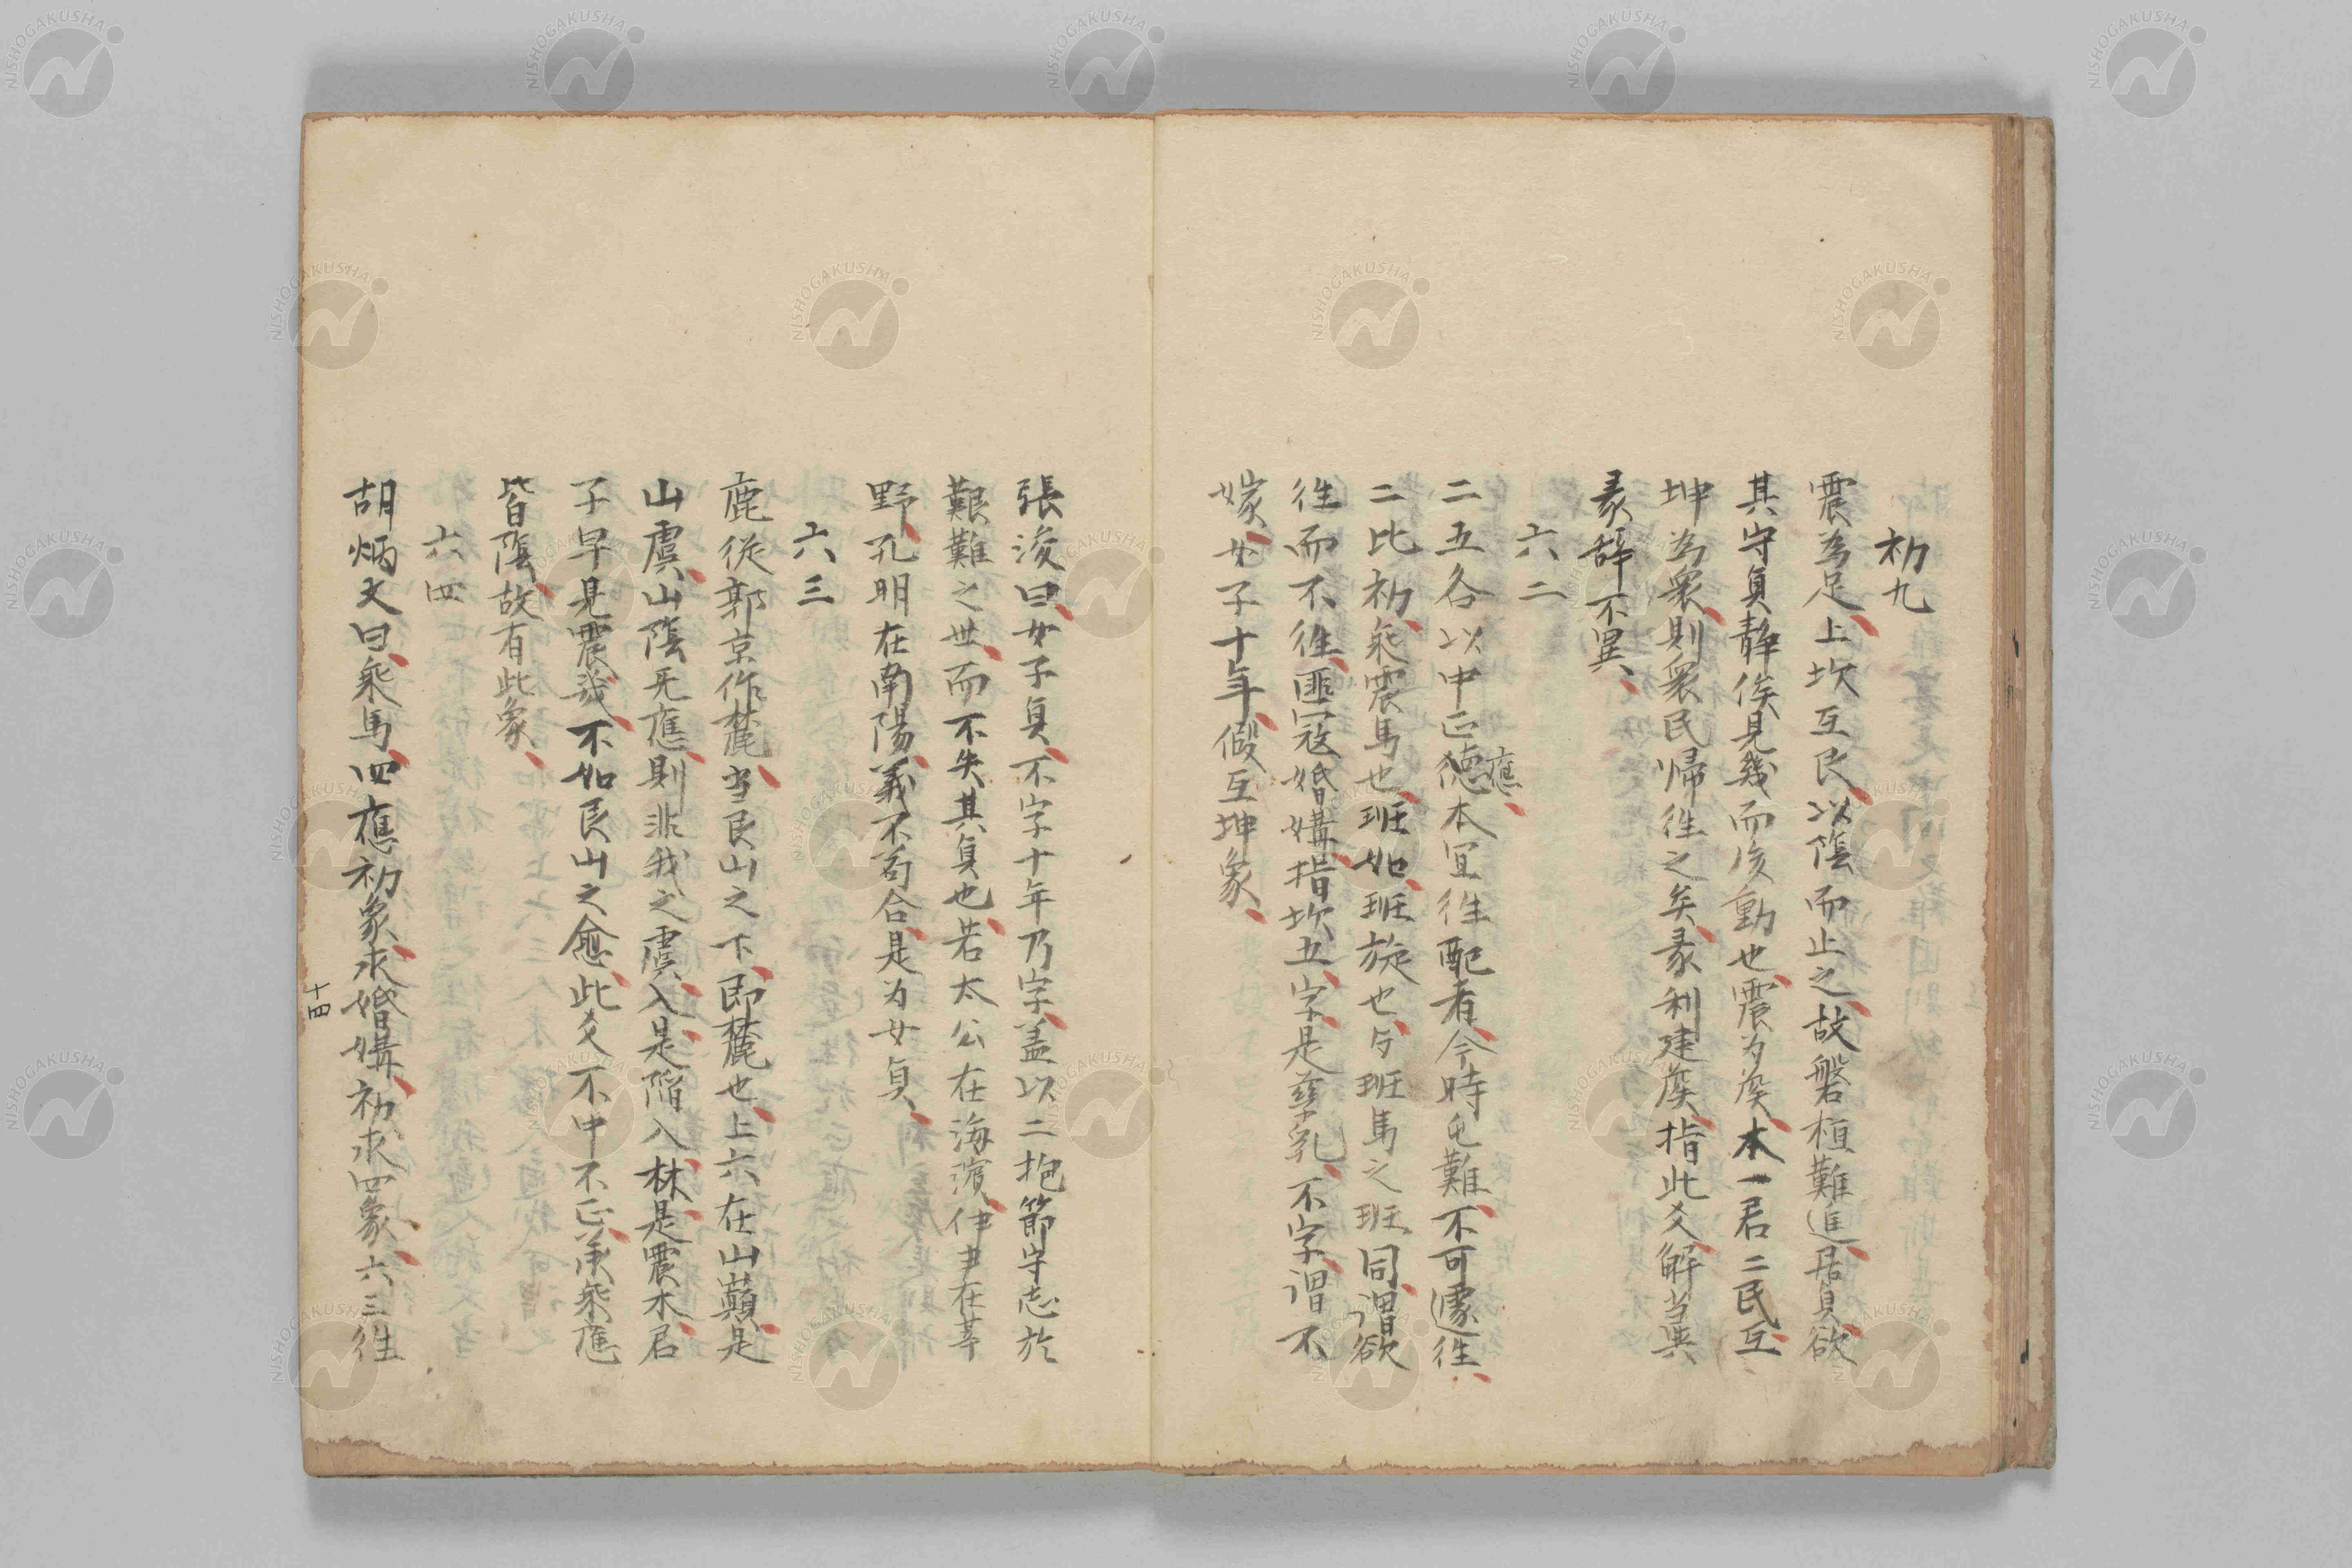 初九
震為足、上坎互艮、以陰而止之、故磐桓難進、居貞欲
其守貞静俟見幾而後動也、震为侯、本一君二民、互
坤為衆、則衆民帰往之矣、彖利建侯、指此爻、解当與
彖辞不異、
六二
二五各以中正徳應、本宜往配者、今時屯難、不可遽往、
二比初、乘震馬也、班如、班旋也、与班馬之班同、謂欲
往而不往、匪寇婚媾、指坎五、字是孳乳、不字、謂不
嫁、女子十年、假互坤象、
張浚曰、女子貞、不字十年乃字、盖以二抱節守志於
艱難之世、而不失其貞也、若太公在海濱、伊尹在莘
野、孔明在南陽、義不苟合、是为女貞、
六三
鹿従郭京作麓、当艮山之下、即麓也、上六在山巓、是
山虞、山陰无應、則非我之虞、入是陥入、林是震木、君
子早見震幾、不如艮山之愈、此爻不中不正、承乘應
皆陰、故有此象、
六四
胡炳文曰、乘馬、四應初象、求婚媾、初求四象、六三往
十四
NISHOGAKUSHA